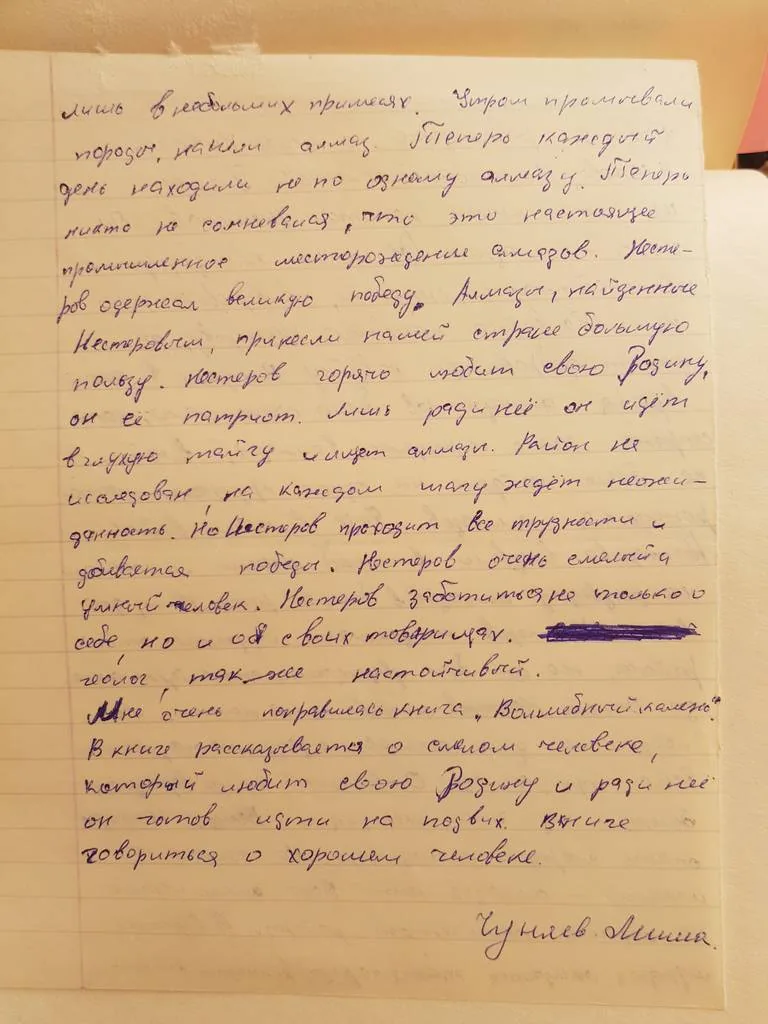 лишь в небольших примесях. Утром промывали
породы, нашли алмаз. Теперь каждый
день находили не по одному алмазу. Теперь
никто не сомневался, что это настоящее
промышленное месторождение алмазов. Несте-
ров одержал великую победу. Алмазы, найденные
Нестеровым, принесли нашей стране большую
пользу. Нестеров горячо любит свою Родину,
он её патриот. Лишь ради неё он идёт
в глухую тайгу и ищет алмазы. Район не
исследован, на каждом шагу ждёт неожи-
данность. Но Нестеров проходит все трудности и
добивается победы. Нестеров очень смелый и
умный человек. Нестеров заботиться не только о
себе, но и об своих товарищах.
геолог, так же настойчивый.
Мне очень понравилась книга „Волшебный камень".
В книге рассказывается о смелом человеке,
который любит свою Родину и ради неё
он готов идти на подвих. В книге
говориться о хорошем человеке.
Чуняев Миша.